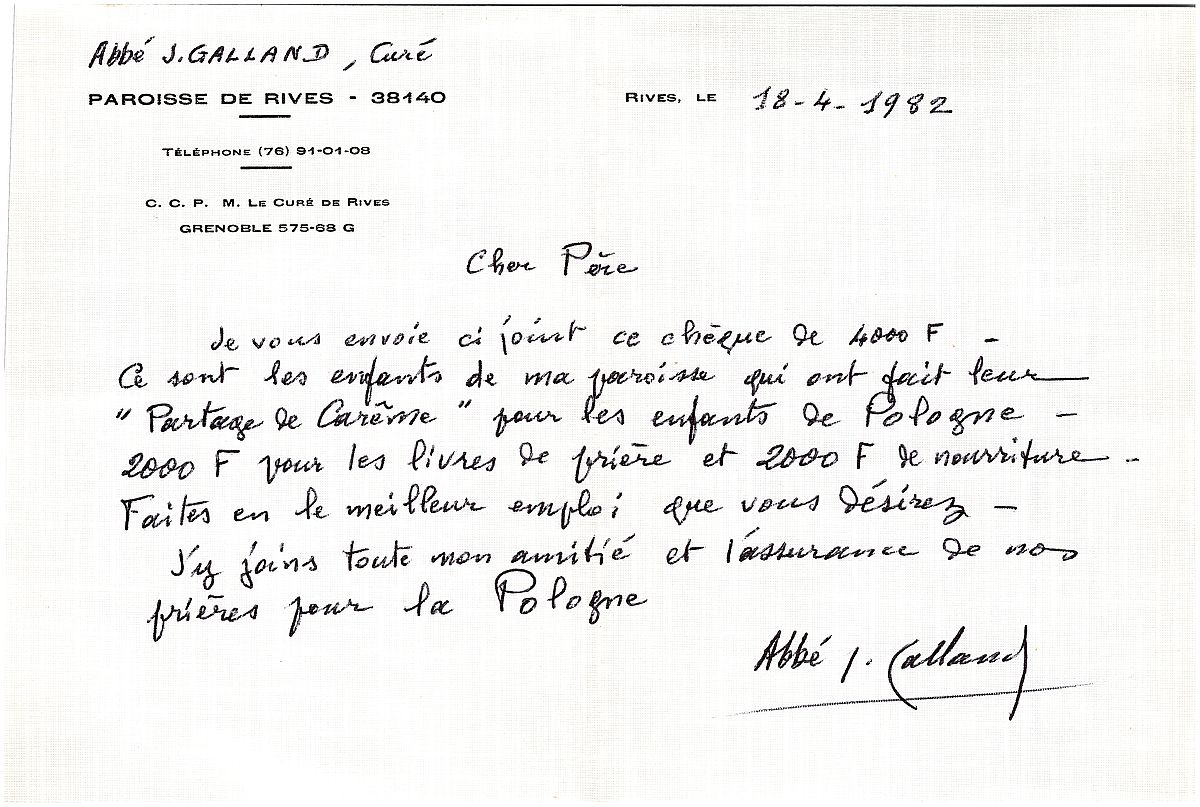 Abbé J. GALLAND, Curé
PAROISSE DE RIVES - 38140
RIVES, LE 18-4-1982
TÉLÉPHONE (76) 91-01-08
C. C. P. M. LE CURÉ DE RIVES
GRENOBLE 575-68 G
Cher Père
Je vous envoie ci joint ce chèque de 4000 F -
Ce sont les enfants de ma paroisse qui ont fait leur
" Partage de Carême " pour les enfants de Pologne -
2000 F pour les livres de prière et 2000 F de nourriture -
Faites en le meilleur emploi que vous désirez -
J'y joins toute mon amitié et l'assurance de nos
prières pour la Pologne
Abbé J. Galland